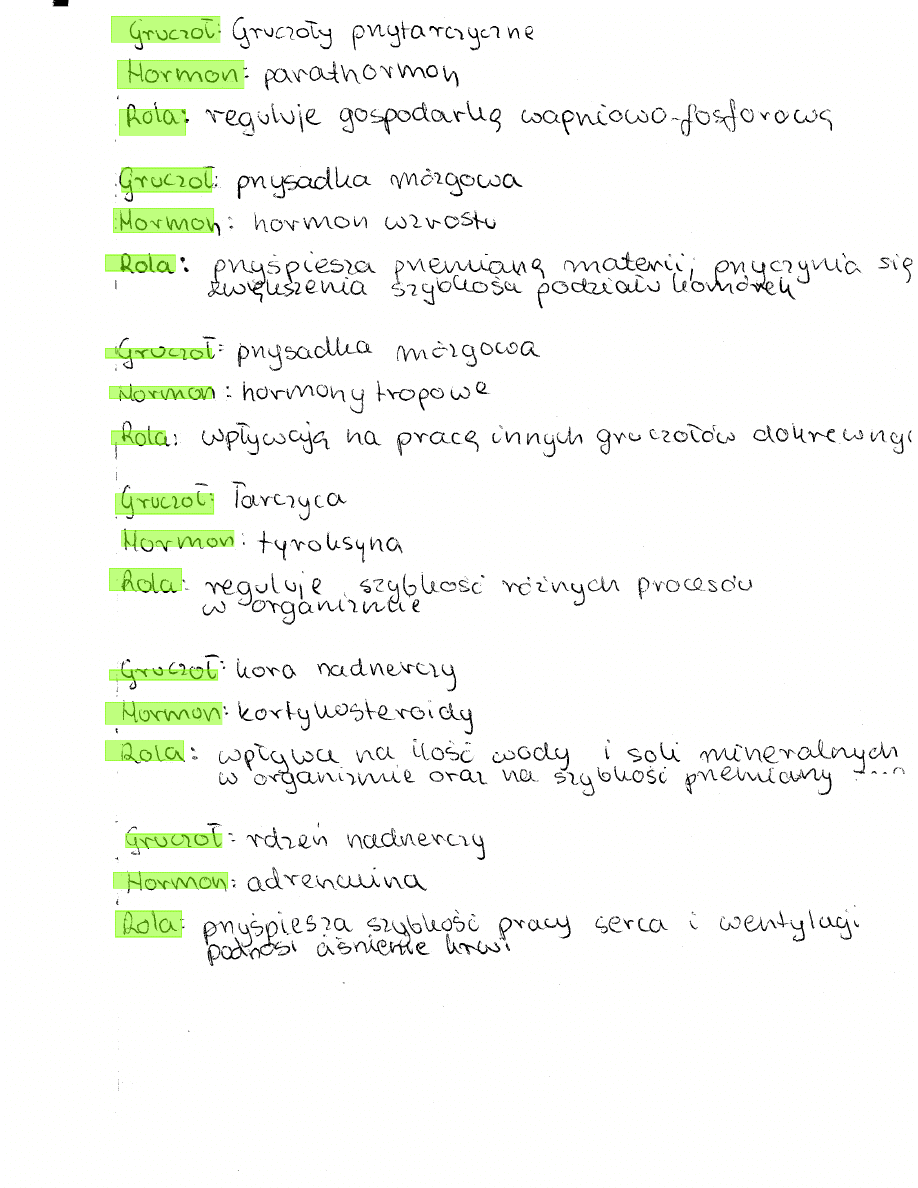 Gruczoł: Gruczoły przytarczyczne
Hormon: parathormon
Rola: reguluje gospodarkę wapniowo-fosforową
Gruczoł: przysadka mózgowa
Hormon: hormon wzrostu
Rola: przyśpiesza przemianą materii, przyczynia się
zwiększenia szybkości podziału komórek
Gruczoł: przysadka mózgowa
Hormon: hormony tropowe
Rola: wpływają na pracę innych gruczołów dokrewnyc
Gruczoł: Tarczyca
Hormon: tyroksyna
Rola: reguluje szybkość różnych procesów
w organizmie
Gruczoł: kora nadnerczy
Hormon: kortykosteroidy
Rola: wpływa na ilość wody i soli mineralnych
w organizmie oraz na szybkość przemiany ....
Gruczoł: rdzeń nadnerczy
Hormon: adrenalina
Rola: przyśpiesza szybkość pracy serca i wentylacji
podnosi ciśnienie krwi